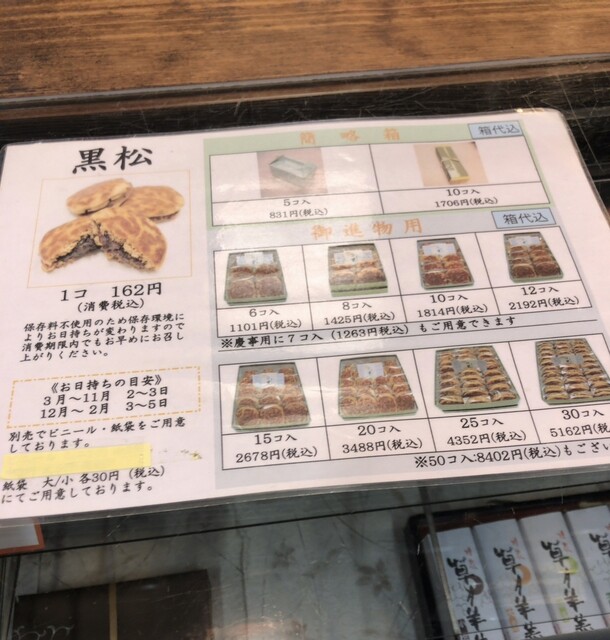 黒松
1コ 162円
(消費税込)
保存料不使用のため保存環境に
よりお日持ちが変わりますので
消費期限内でもお早めにお召し
上がりください。
《お日持ちの目安》
3月~11月 2~3日
12月~2月 3~5日
別売でビニール・紙袋をご用意
しております。
紙袋 大/小 各30円 (税込)
にてご用意しております。
簡略箱
箱代込
5コ入
831円(税込)
10コ入
1706円(税込)
御進物用
箱代込
6コ入
1101円(税込)
8コ入
1425円(税込)
10コ入
1814円(税込)
12コ入
2192円(税込)
※慶事用に7コ入 (1263円税込) もご用意できます
15コ入
2678円(税込)
20コ入
3488円(税込)
25コ入
4352円(税込)
30コ入
5162円(税込
※50コ入:8402円(税込)もござい